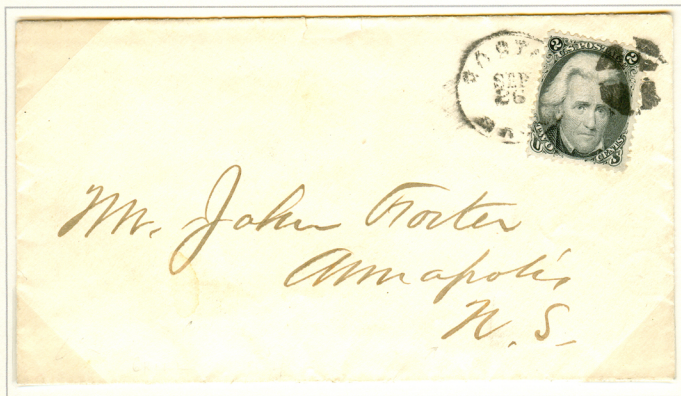 BOSTO
SEP
26
2 U.S. POSTA 2
TWO CENTS
U S
Mr. John Foster
Annapolis
N. S.